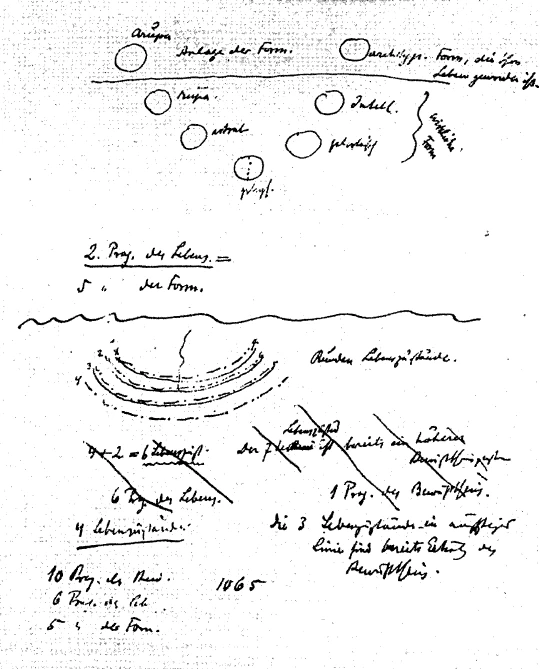 Arûpa
Anlage der Form.
Archetyp. Form, die ihr
Leben geworden ist.
Rûpa.
Intell.
astral
physisch
wirkliche
Form
2. Proz. des Lebens. =
5 " der Form.
Runden Lebenszustände.
4 3 2 1
4 + 2 = 6 Lebenszust.
Der 7 Lebenszustand ist bereits ein höherer
6 Proz. des Lebens.
1 Proz. des Bewußtseins.
4 Lebenszustände
Die 3 Lebenszustände in aufsteigender
Linie sind bereits des
Bewußtseins.
10 Proz. des Bew.
1065
6 Proz. des Leb.
5 " der Form.